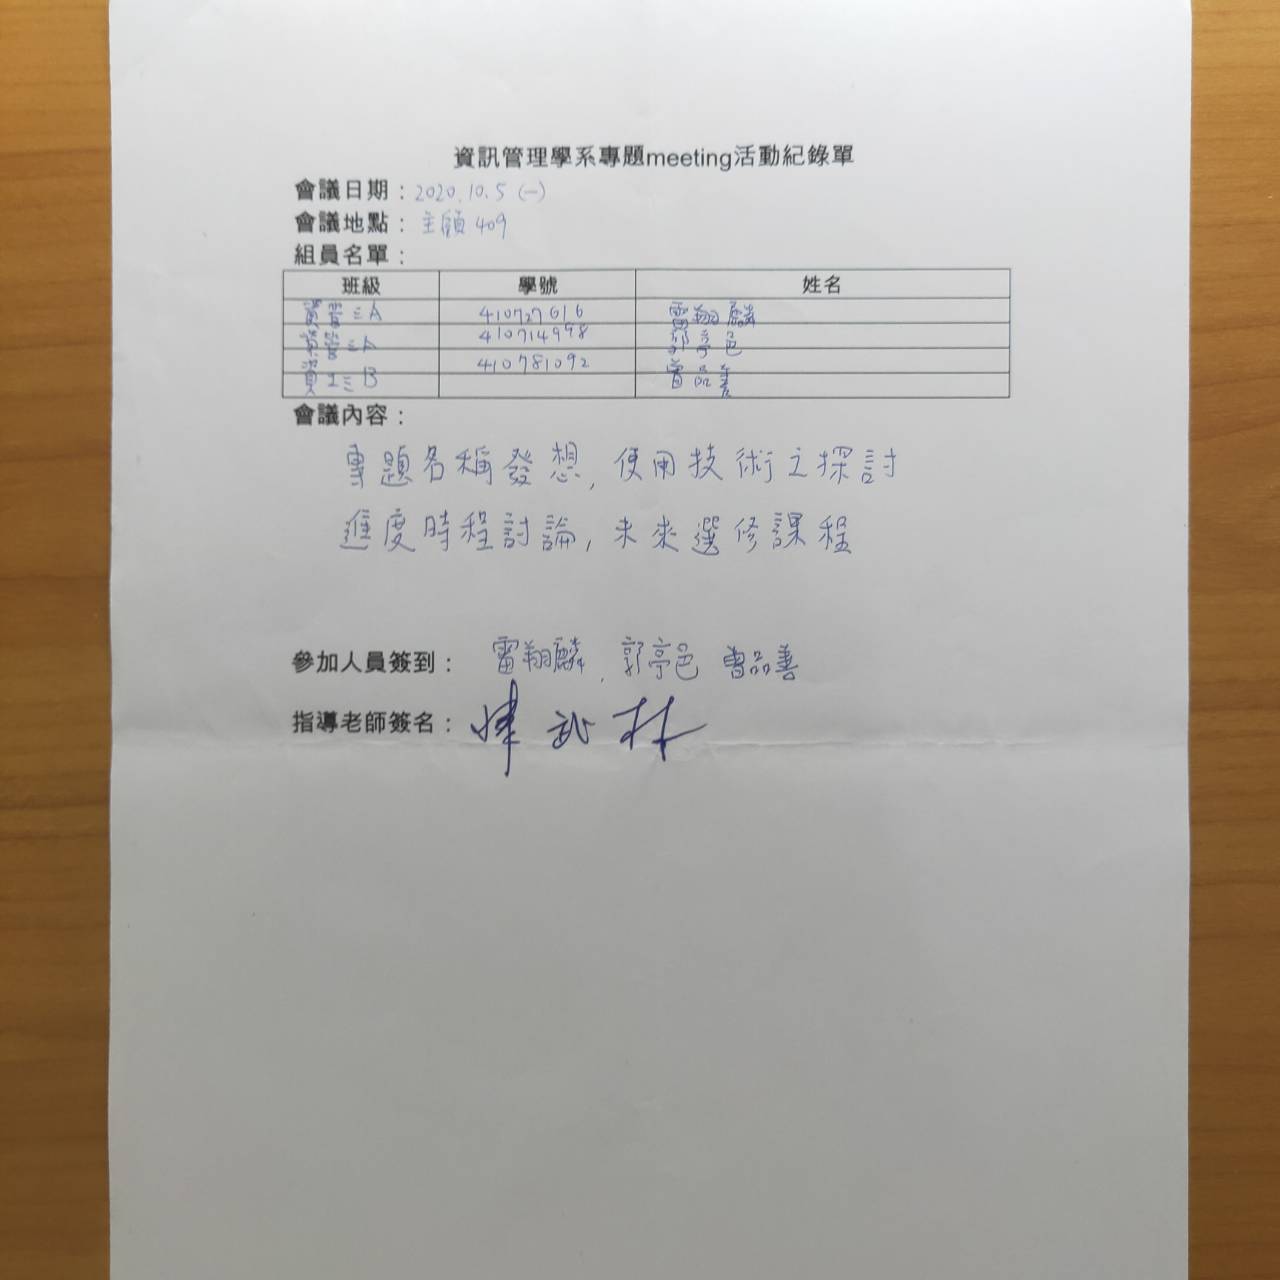 資訊管理學系專題meeting活動紀錄單
會議日期：2020.10.5 (一)
會議地點：主顧 409
組員名單：
班級 學號 姓名
資管三A 410727616 雷翔麟
資管三A 410714998 郭亭邑
資工三B 410781092 曾品善
會議內容：
專題名稱發想, 使用技術之探討
進度時程討論, 未來選修課程
參加人員簽到： 雷翔麟, 郭亭邑 曾品善
指導老師簽名：